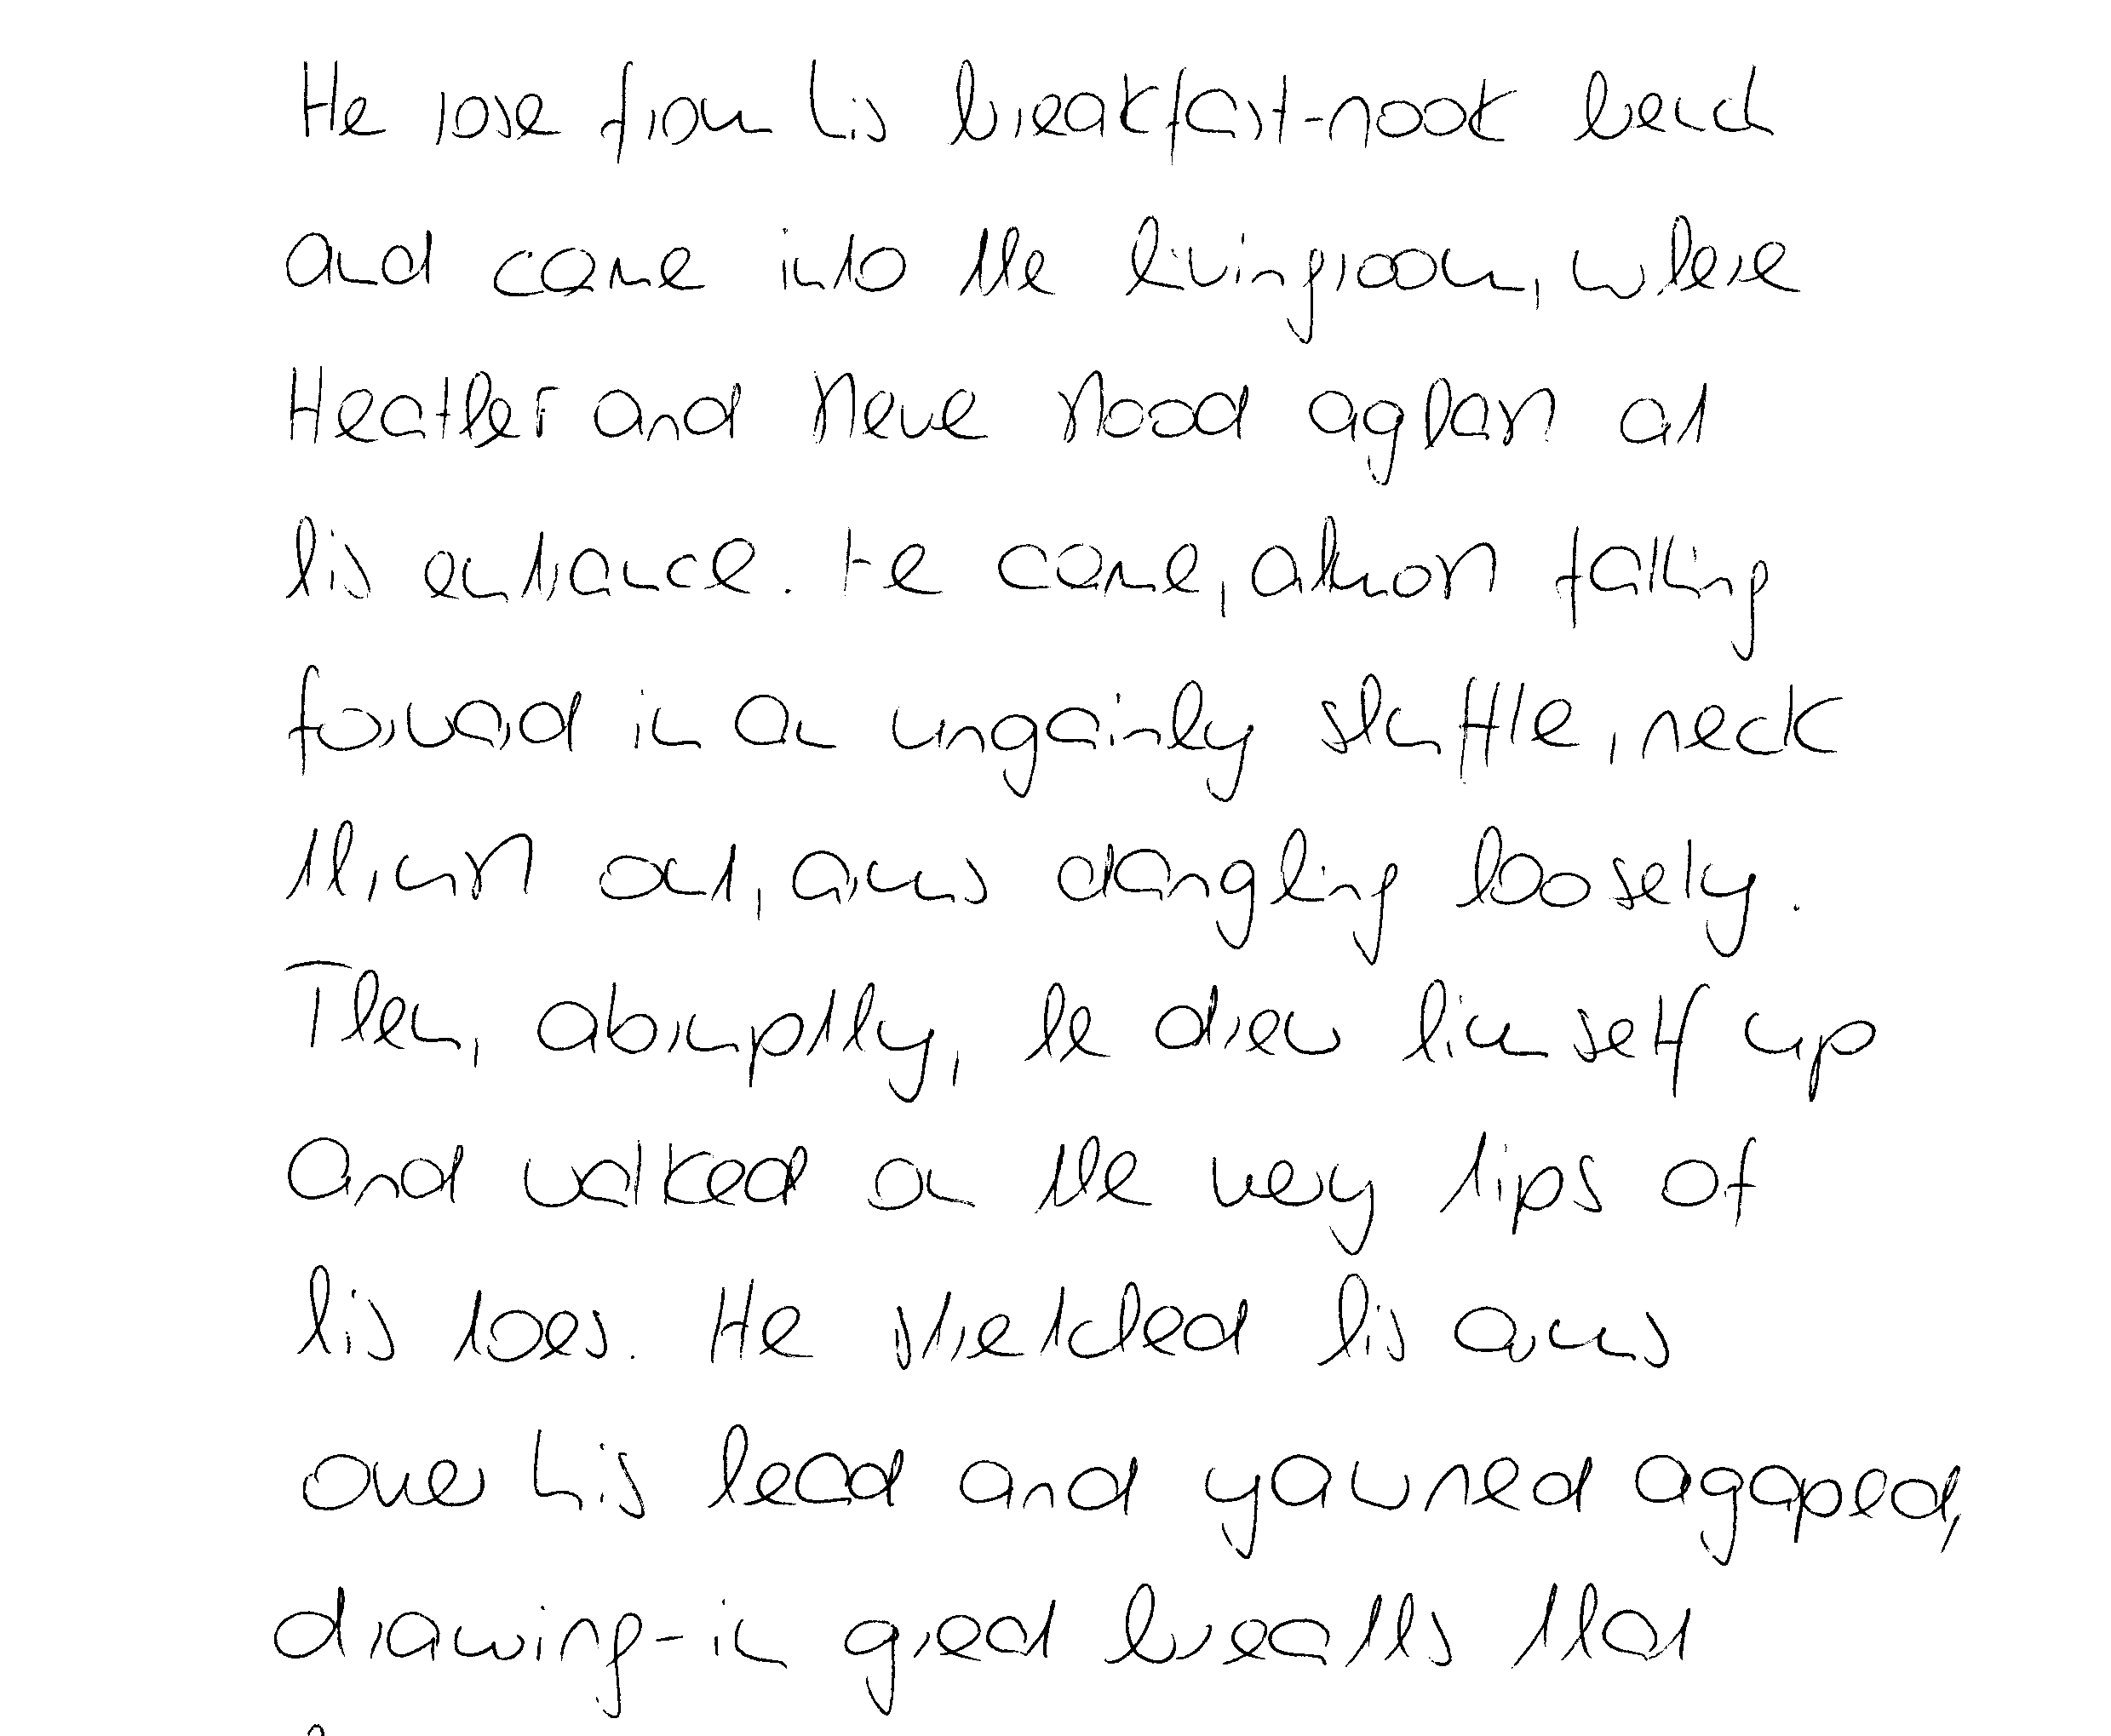 He rose from his breakfast-nook bench
and came into the livingroom, where
Heather and Steve stood aghast at
his entrance. He came, almost falling
forward in an ungainly shuffle, neck
thrust out, arms dangling loosely.
Then, abruptly, he drew himself up
and walked on the very tips of
his toes. He stretched his arms
over his head and yawned agaped,
drawing-in great breaths that